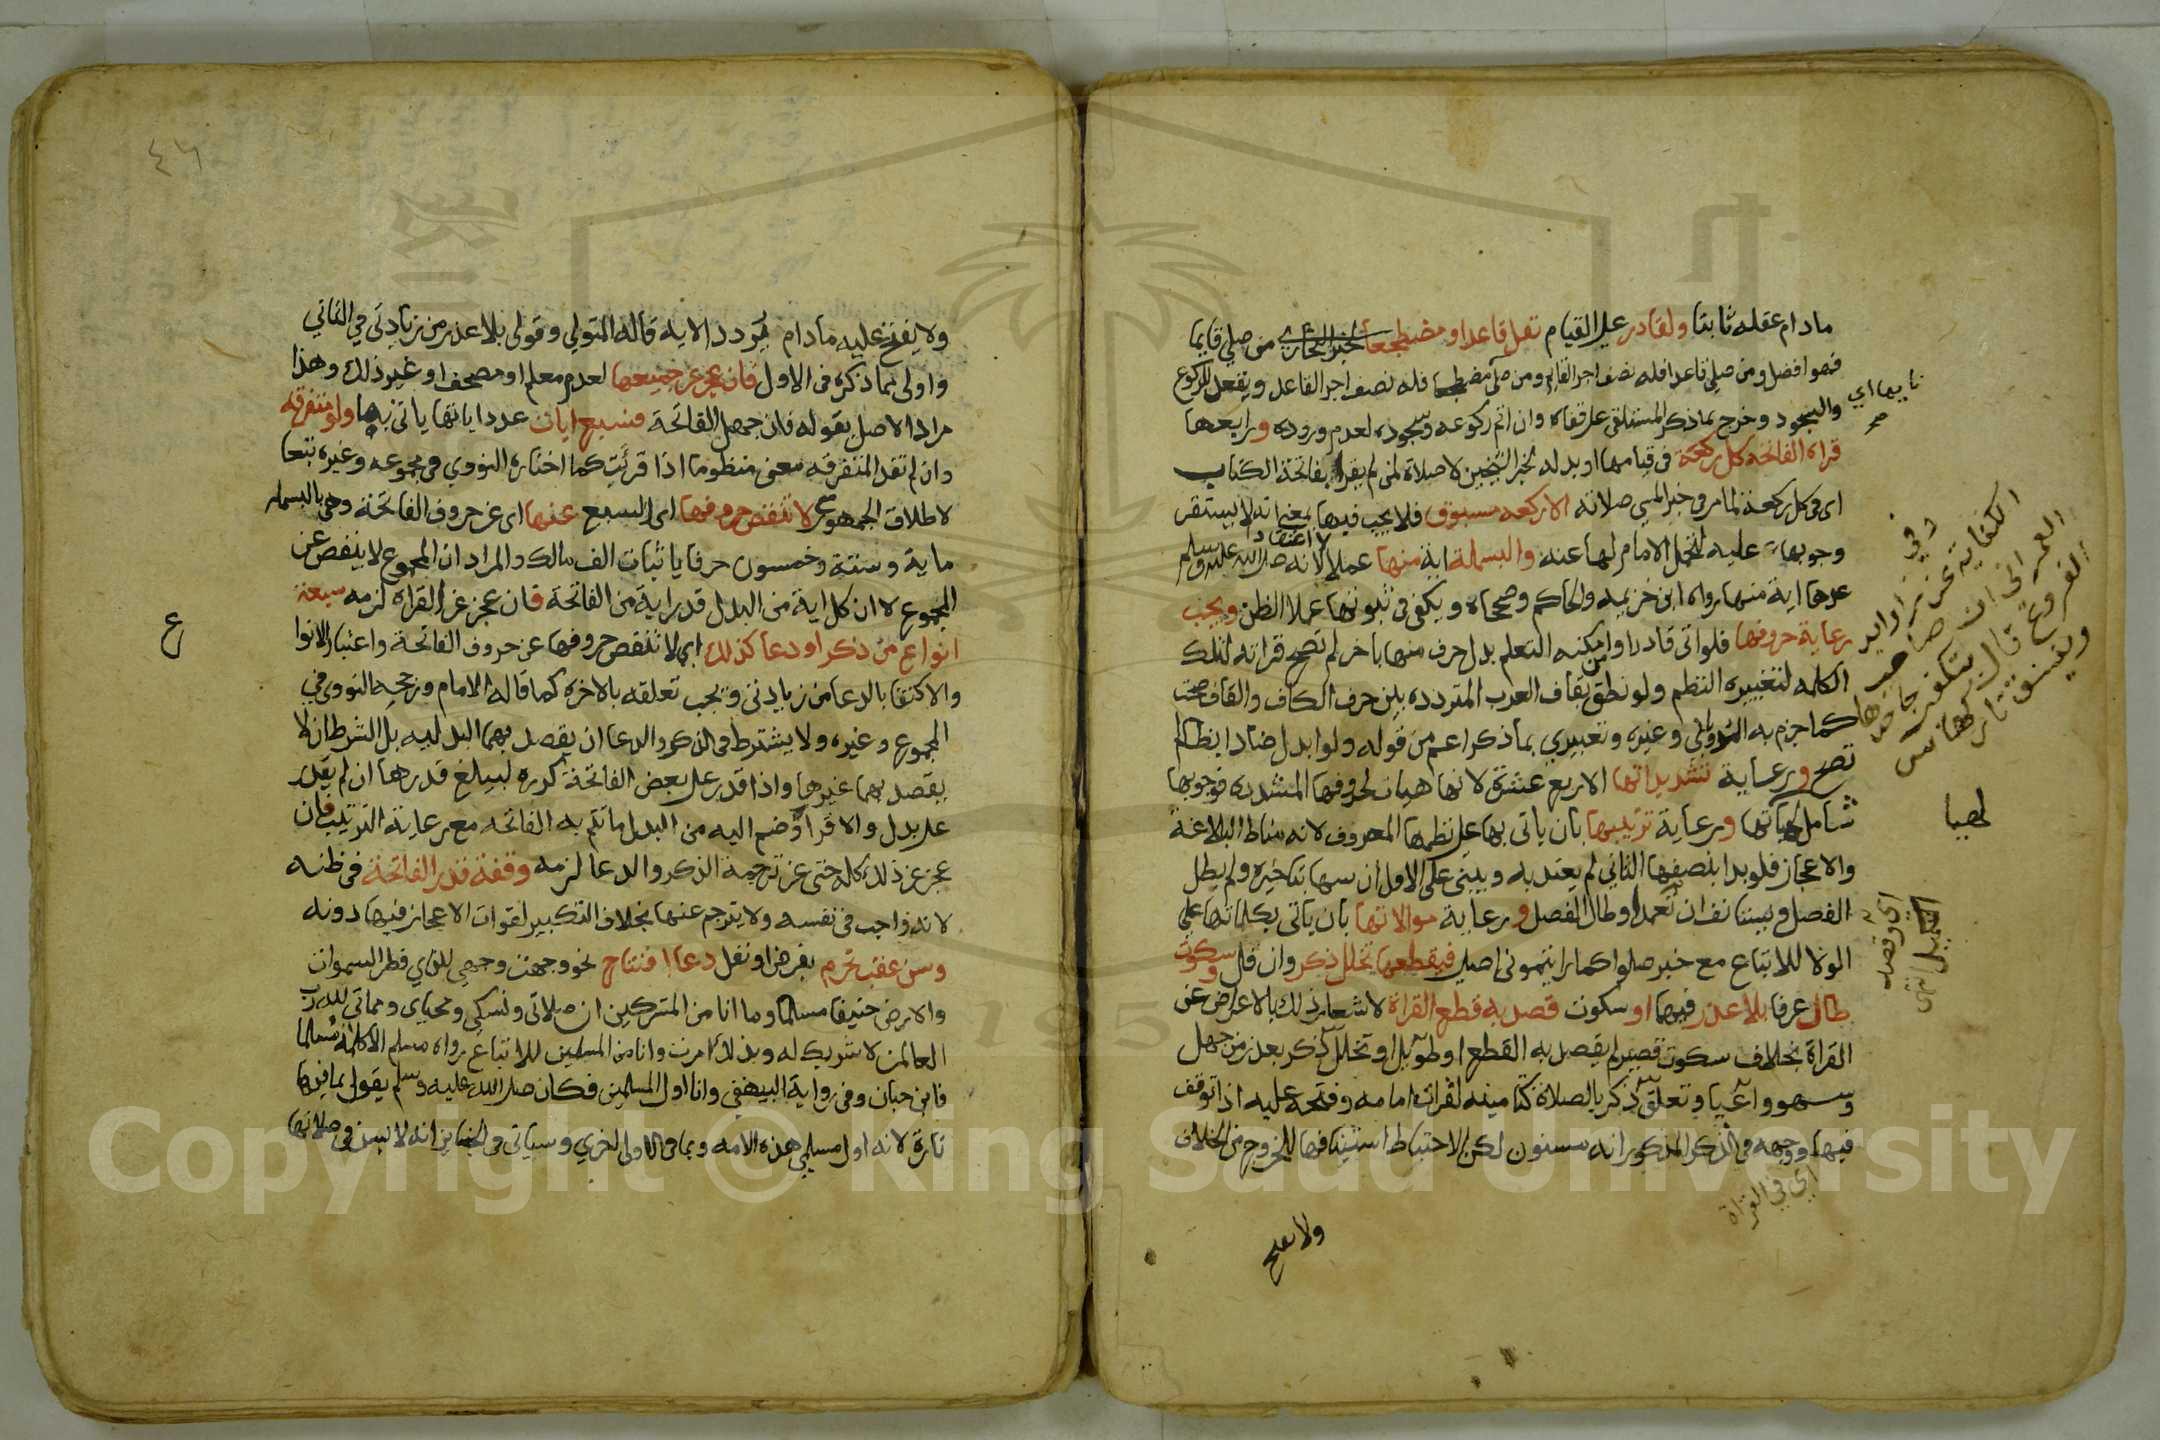 مادام عقله ثابتا ولقادر على القيام نفل قاعدا ومضطجعا لخبر البخاري من صلى قايما
فهو افضل ومن صلى قاعدا فله نصف اجر القايم ومن صلى مضطجعا فله نصف اجر القاعد ويقعد للركوع
والسجود وخرج بما ذكر المستلقي على قفاه وان اتم ركوعه وسجوده لعدم وروده ورابعها
قراة الفاتحة كل ركعة في قيامها او بدله لخبر الشيخين لا صلاة لمن لم يقرا بفاتحة الكتاب
اي في كل ركعة لما مر في خبر المسي صلاته الا ركعة مسبوق فلا يجب فيها بمعنى انه لا يستقر
وجوبها عليه لتحمل الامام لها عنه والبسملة اية منها عملا لانه صلى الله عليه وسلم
عدها اية منها رواه ابن خزيمه والحاكم وصححاه ويكفي في ثبوتها عملا الظن ويجب
رعاية حروفها فلو اتى قادرا وامكنه التعلم بدل حرف منها باخر لم تصح قراته لتلك
الكلمه لتغييره النظم ولو نطق بقاف العرب المترددة بين حرف الكاف والقاف صحت
كما جزم به الروياني وغيره وتعبيري بما ذكر اعم من قوله ولو ابدل ضادا بظا لم
تصح ورعاية تشديداتها الاربع عشرة لانها هيات لحروفها المشددة فوجوبها
شامل لهيآتها ورعاية ترتيبها بان ياتي بها على نظمها المعروف لانه مناط البلاغة
والاعجاز فلو بدا بنصفها الثاني لم يعتد به ويبني على الاول ان سها بتاخيره ولم يطل
الفصل ويستانف ان تعمد او طال الفصل ورعاية موالاتها بان ياتي بكلماتها على
الولا للاتباع مع خبر صلوا كما رايتموني اصلي فيقطعها تخلل ذكر وان قل وسكوت
طال عرفا بلا عذر فيهما او سكوت قصد به قطع القراة لاشعار ذلك بالاعراض عن
القراة بخلاف سكوت قصير لم يقصد به القطع او طويل او تخلل ذكر بعذر من جهل
وسهو واعيا وتعلق ذكر بالصلاة كتامينه لقراة امامه وفتحه عليه اذا توقف
فيها ووجهه في الذكر المذكور انه مسنون لكن الاحتياط استينافها للخروج من الخلاف
اي في القراة
ولا يفتح
لهيا
ولا يفتح عليه مادام يردد الاية قاله المتولي وقولي بلا عذر من زيادتي في الثاني
واولى بما ذكره في الاول فان عجز عن جميعها لعدم معلم او مصحف او غير ذلك وهذا
مراد الاصل بقوله فان جهل الفاتحة فسبع ايات عدد اياتها ياتي بها ولو متفرقة
وان لم تفد المتفرقه معنى منظوما اذا قرئت كما اختاره النووي في مجموعه وغيره تبعا
لاطلاق الجمهور لا تنقص حروفها اي السبع عنها اي عن حروف الفاتحة وهي بالبسملة
ماية وستة وخمسون حرفا باثبات الف مالك والمراد ان المجموع لا ينقص عن
المجموع لا ان كل اية من البدل قدر اية من الفاتحة فان عجز عن القراة لزمه سبعة
انواع من ذكر او دعا كذلك اي لا تنقص حروفها عن حروف الفاتحة واعتبار الانواع
والاكتفا بالدعا من زيادتي ويجب تعلقه بالاخرة كما قاله الامام ورجحه النووي في
المجموع وغيره ولا يشترط في الذكر والدعا ان يقصد بهما البدلية بل الشرط ان لا
يقصد بهما غيرها واذا قدر على بعض الفاتحة كرره ليبلغ قدرها ان لم يقدر
على بدل والا قراه وضم اليه من البدل ما تتم به الفاتحه مع رعاية الترتيب فان
عجز عن ذلك كله حتى عن ترجمة الذكر والدعا لزمه وقفة قدر الفاتحة في ظنه
لانه واجب في نفسه ولا يترجم عنها بخلاف التكبير لفوات الاعجاز فيها دونه
وسن عقب تحرم بفرض او نفل دعا افتتاح نحو وجهت وجهي للذي فطر السموات
والارض حنيفا مسلما وما انا من المشركين ان صلاتي ونسكي ومحياي ومماتي لله رب
العالمين لا شريك له وبذلك امرت وانا من المسلمين للاتباع رواه مسلم الا كلمة مسلما
فابن حبان وفي رواية البيهقي وانا اول المسلمين فكان صلى الله عليه وسلم يقول بما فيها
تارة لانه اول مسلمي هذه الامه وبما في الاولى اخرى وسياتي في الجنايز انه لا يسن في صلاتها
ع
٤٦
Copyright © King Saud University